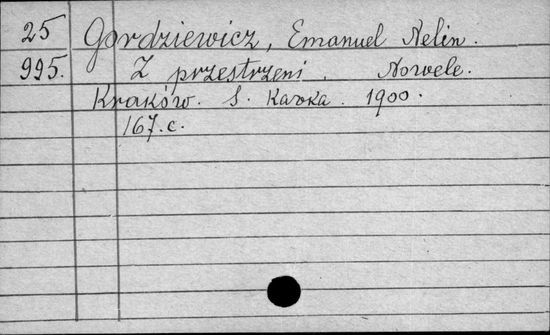 25 Gordziewicz, Emanuel Nelin.
995. Z przestrzeni. Nowele.
Kraków. S. Kavka. 1900.
167. c.